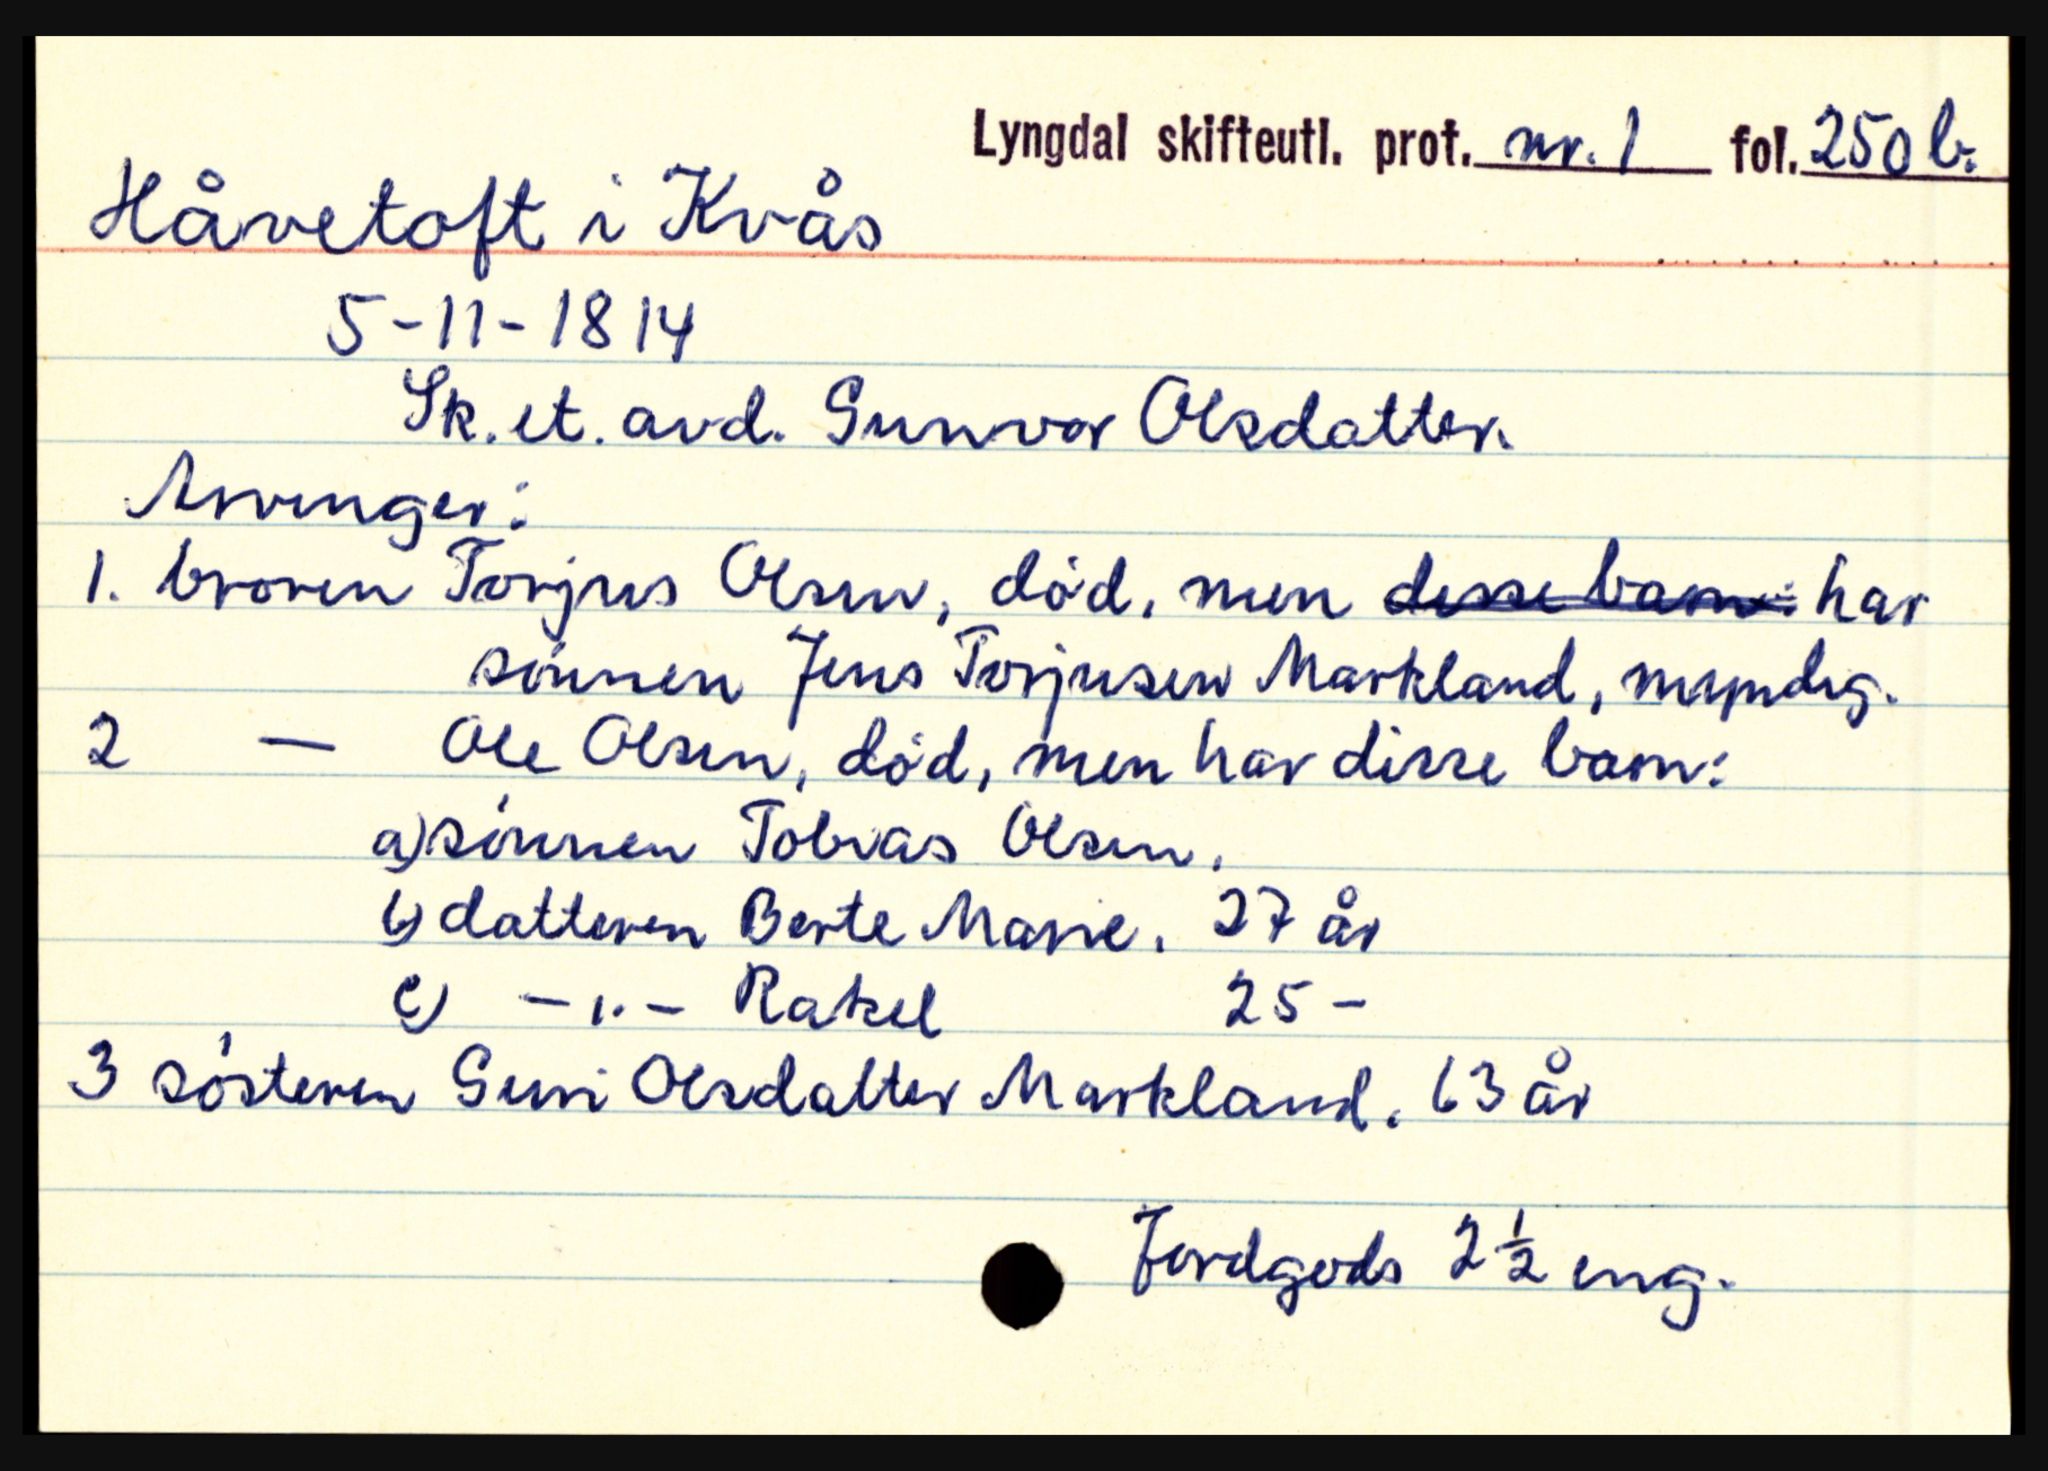 Lyngdal skifteutl. prot. nr. 1 fol. 250 b.
Håvetoft i Kvås
5-11-1814
Sk. et. avd. Gunvor Olsdatter.
Arvinger:
1. broren Torjus Olsen, død, men disse barn: har
sønnen Jens Torjusen Markland, myndig.
2 — Ole Olsen, død, men har disse barn:
a) sønnen Tobias Olsen,
b) datteren Berte Marie. 27 år
c) -"- Rakel 25 -
3 søsteren Guri Olsdatter Markland. 63 år
Jordgods 2 1/2 eng.